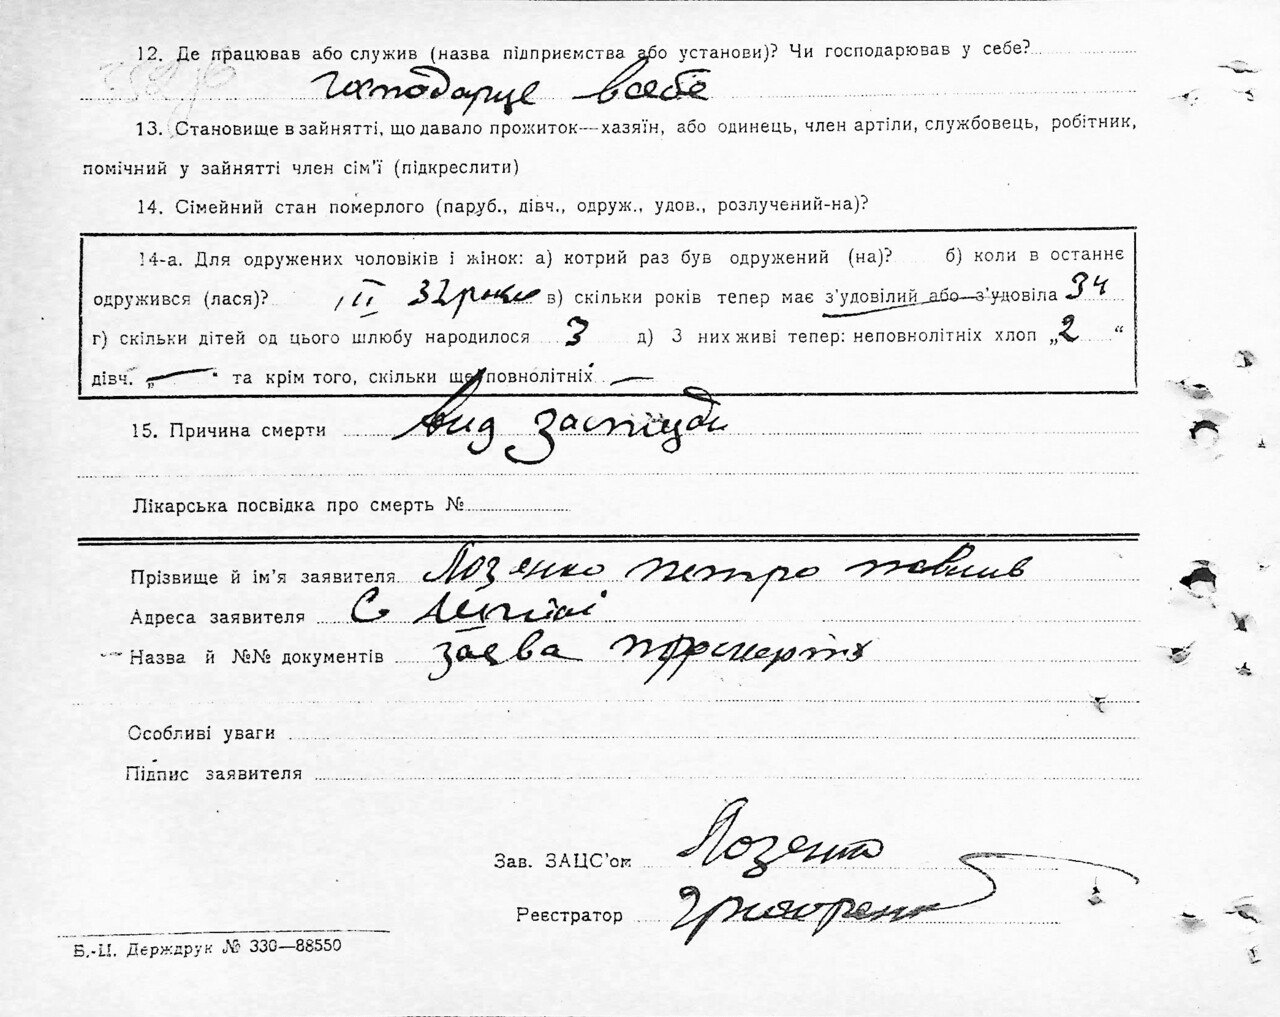 12. Де працював або служив (назва підприємства або установи)? Чи господарював у себе?
господарце всебе
13. Становище в зайнятті, що давало прожиток—хазяїн, або одинець, член артіли, службовець, робітник,
помічний у зайнятті член сім'ї (підкреслити)
14. Сімейний стан померлого (паруб., дівч., одруж., удов., розлучений-на)?
14-а. Для одружених чоловіків і жінок: а) котрий раз був одружений (на)? б) коли в останнє
одружився (лася)? II 32 роки в) скільки років тепер має з'удовілий або з'удовіла 34
г) скільки дітей од цього шлюбу народилося 3 д) З них живі тепер: неповнолітніх хлоп „2“
дівч. „—“ та крім того, скільки ще повнолітніх —
15. Причина смерти
Лікарська посвідка про смерть №
Прізвище й ім'я заявителя Лозенко петро павлив
Адреса заявителя С
Назва й №№ документів заєва
Особливі уваги
Підпис заявителя
Зав. ЗАЦС'ом Лозенко
Реєстратор
Б.-Ц. Держдрук № 330—88550